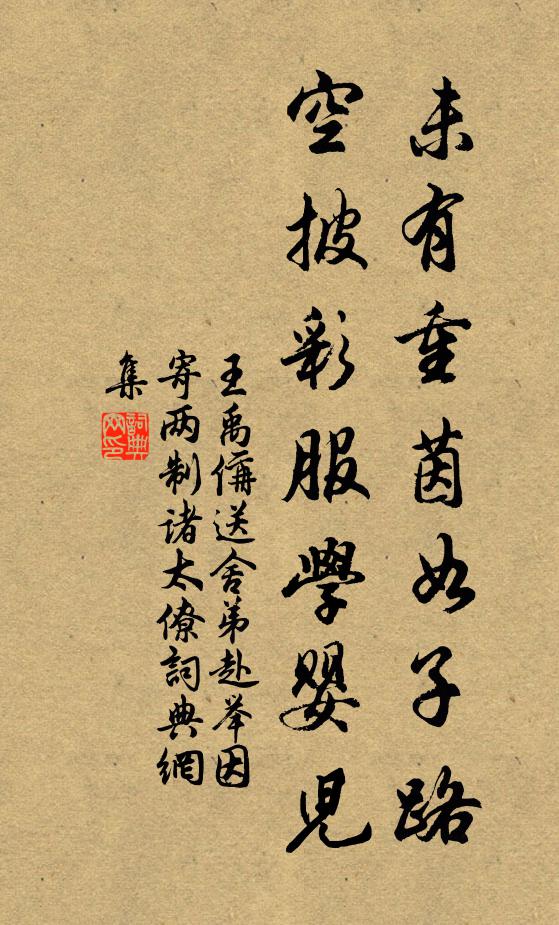 未有重茵如子路
空披彩服學嬰兒
王禹偁送舍弟赴举因
寄两制诸太僚詞典網
集
詞典網印